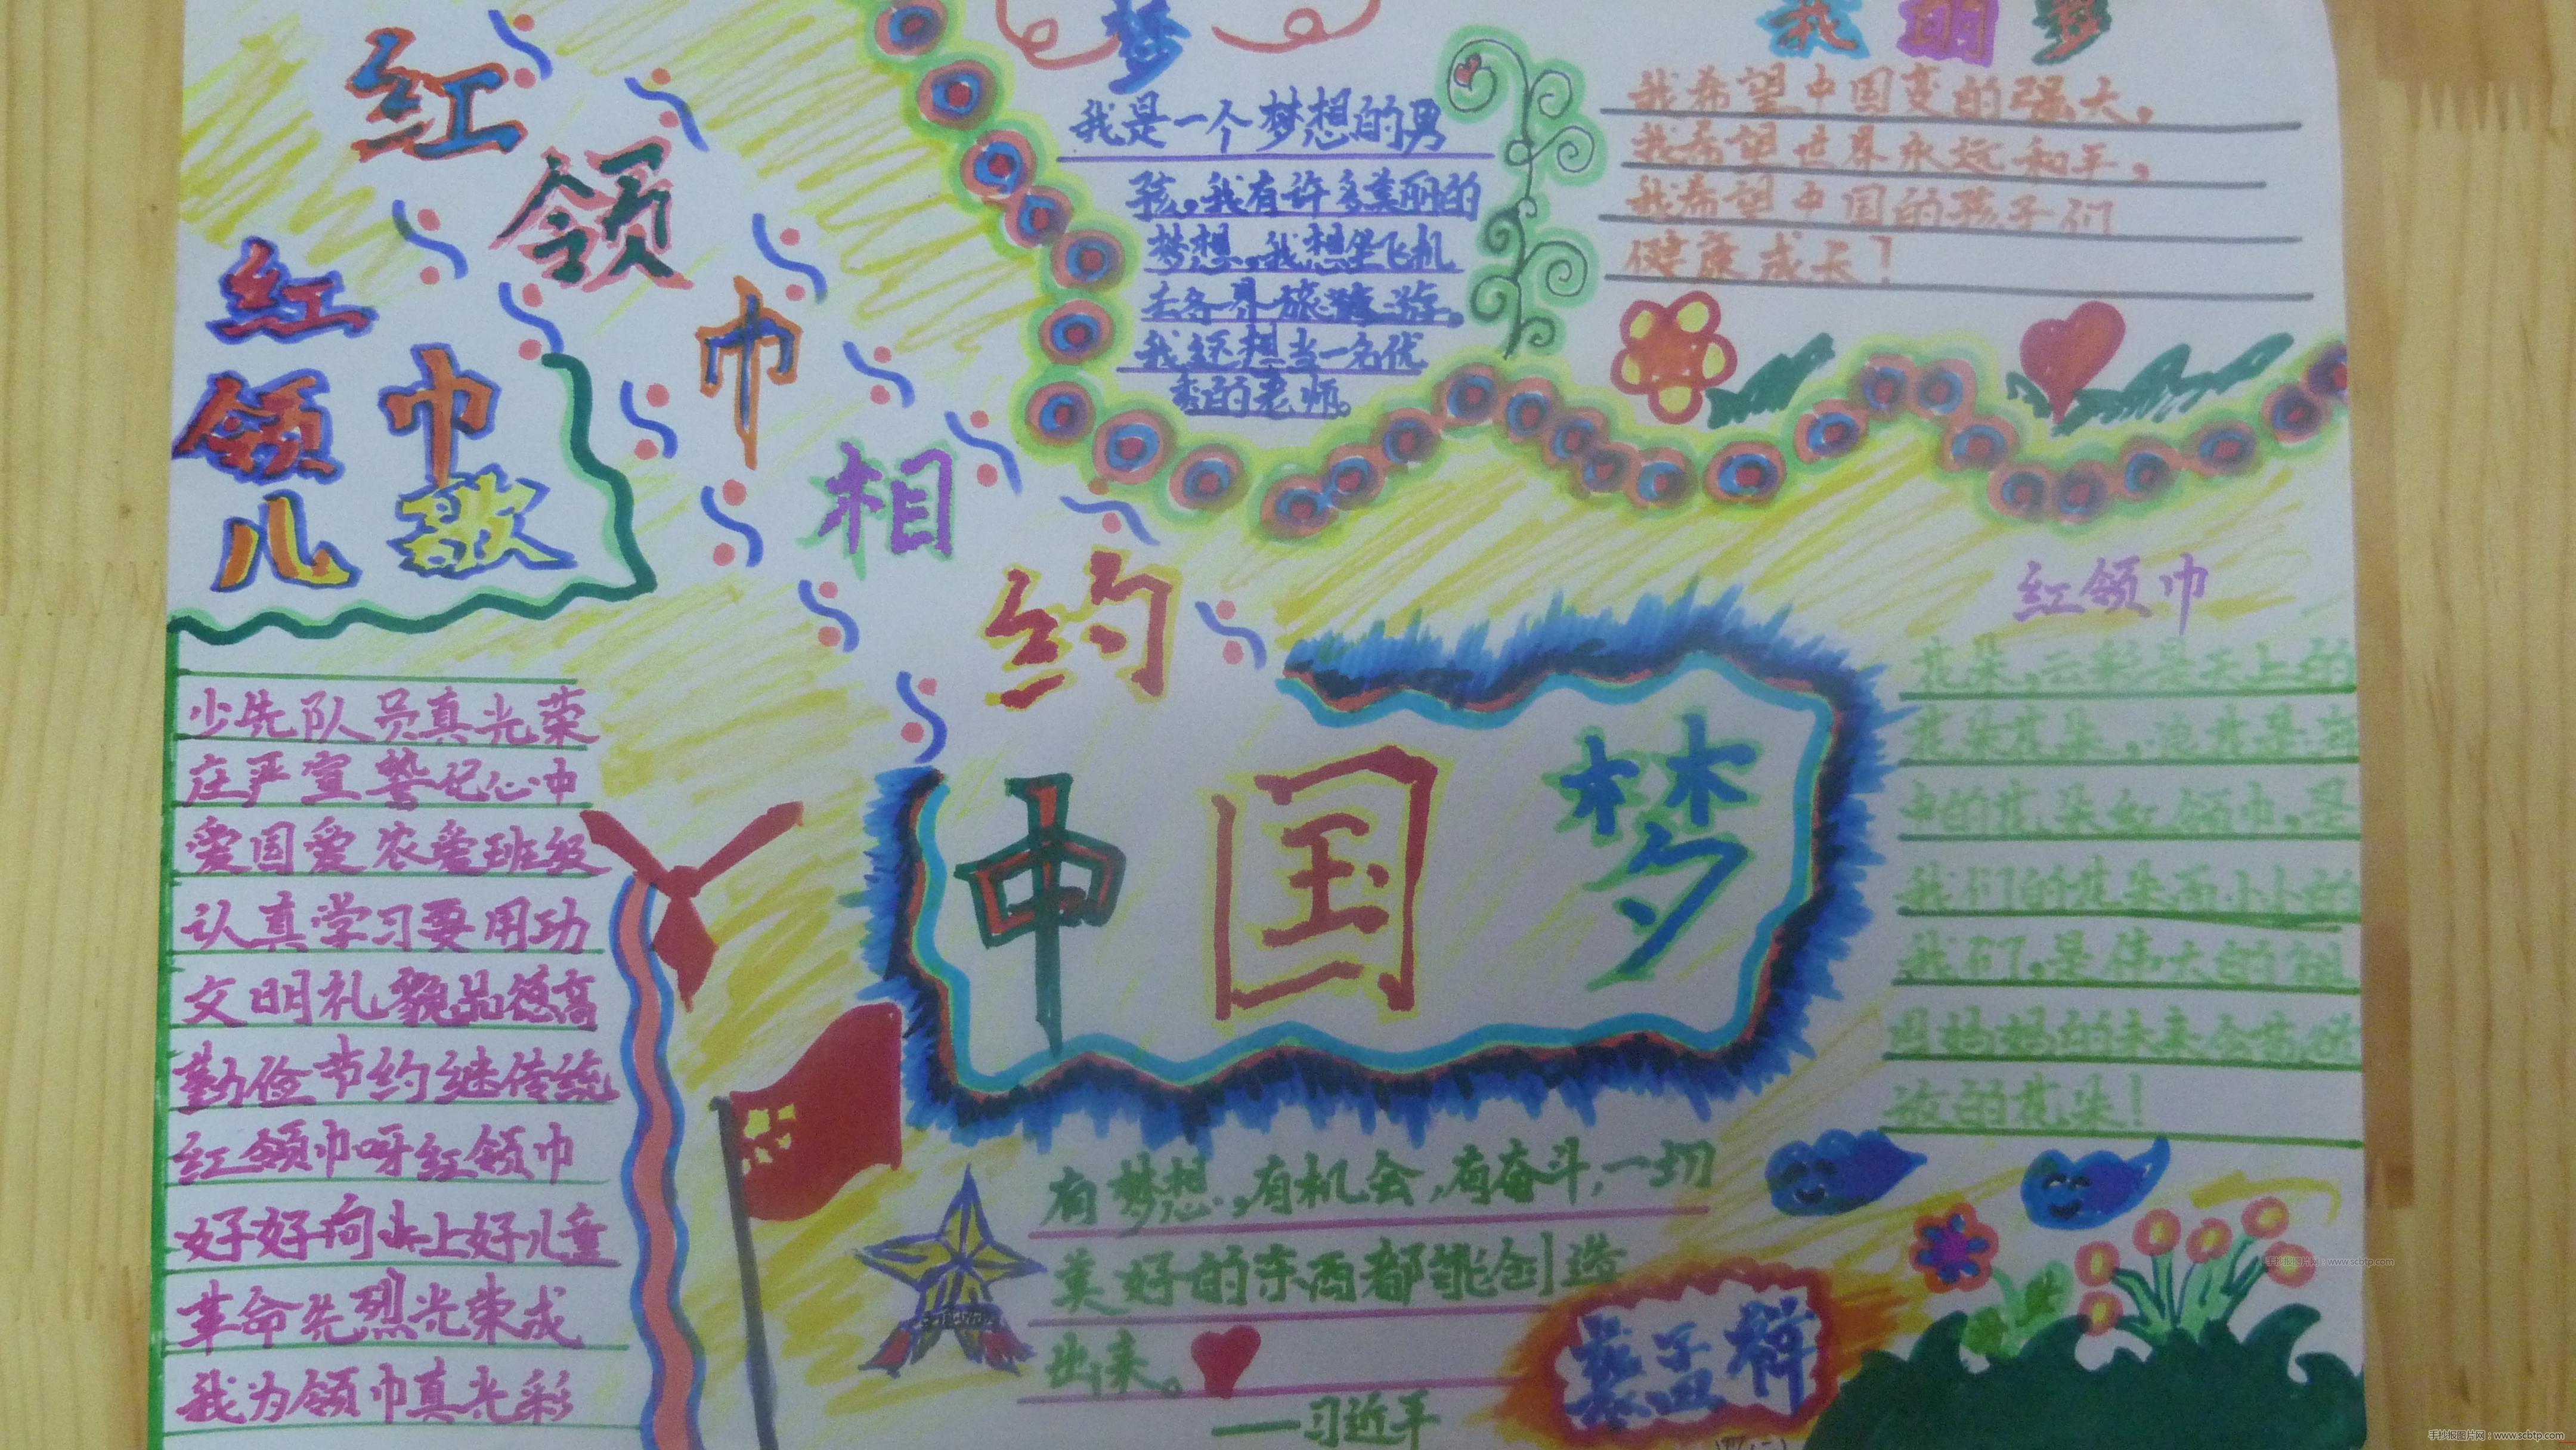 红领巾相约
中国梦
红
领巾
儿歌
少先队员真光荣
庄严宣誓记心中
爱国爱农爱班级
认真学习要用功
文明礼貌品德高
勤俭节约继传统
红领巾呀红领巾
好好向上好儿童
革命先烈光荣成
我为领巾真光彩
梦
我是一个梦想的男
孩。我有许多美丽的
梦想。我想坐飞机
去各界旅游。
我还想当一名优
秀的老师。
我的梦
我希望中国变的强大，
我希望世界永远和平，
我希望中国的孩子们
健康成长！
红领巾
花朵，云彩是天上的
花朵花朵，浪花是
中的花朵红领巾，是
我们的花朵而小小的
我们，是伟大的祖
妈妈的未来会
放的花朵！
有梦想，有机会，有奋斗，一切
美好的东西都能创造
出来。
——习近平
手抄报图片网：www.scbtp.com
手抄报图片网：www.scbtp.com